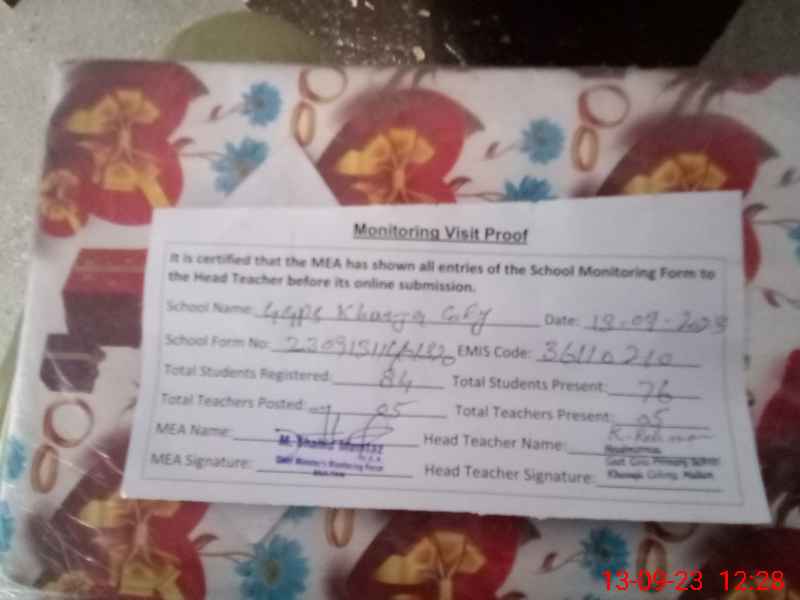 Monitoring Visit Proof
It is certified that the MEA has shown all entries of the School Monitoring Form to
the Head Teacher before its online submission.
School Name: Ggps Khawja Date: 13-09-2023
School Form No: EMIS Code: 36110210
Total Students Registered: 84 Total Students Present: 76
Total Teachers Posted: 05 Total Teachers Present: 05
MEA Name: Head Teacher Name:
MEA Signature: Head Teacher Signature:
Govt. Girls Primary School
13-09-23 12:28